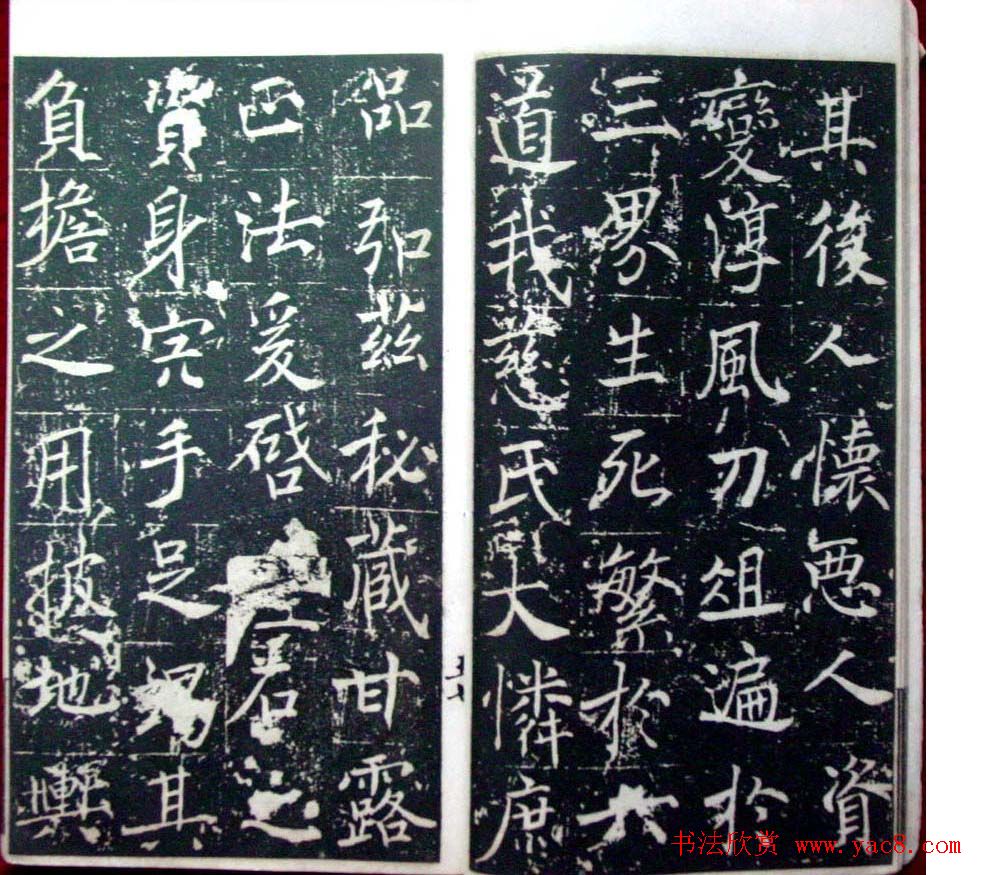 其後人懷惡人資
變淳風刀俎遍於
三界生死繁於六
道我慈氏大憐庶
品弘茲秘藏甘露
正法爰啓之
資身宍手足竭其
負擔之用披地
书法欣赏 www.yac8.com